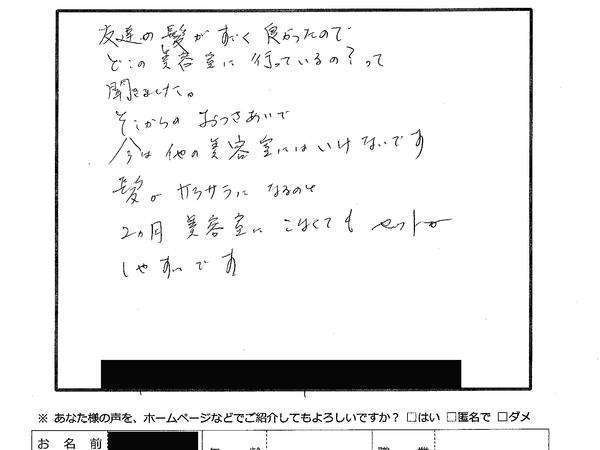 友達の髪がすごく良かったので
どこの美容室に行っているの？って
聞きました。
そこからのおつきあいで
今は他の美容室にはいけないです
髪がサラサラになるのと
2ヵ月美容室にこなくてもセットが
しやすいです
※ あなた様の声を、ホームページなどでご紹介してもよろしいですか？ □はい □匿名で □ダメ
お 名 前